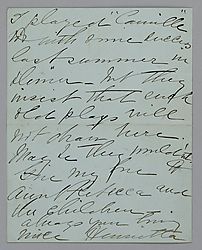 I played "Camille"
with some success
last summer in
Denver. but they
insist that such
old plays will
not draw here
Maybe they
Give my love
Aunt Rebecca and
the children.
always your
niece Henrietta